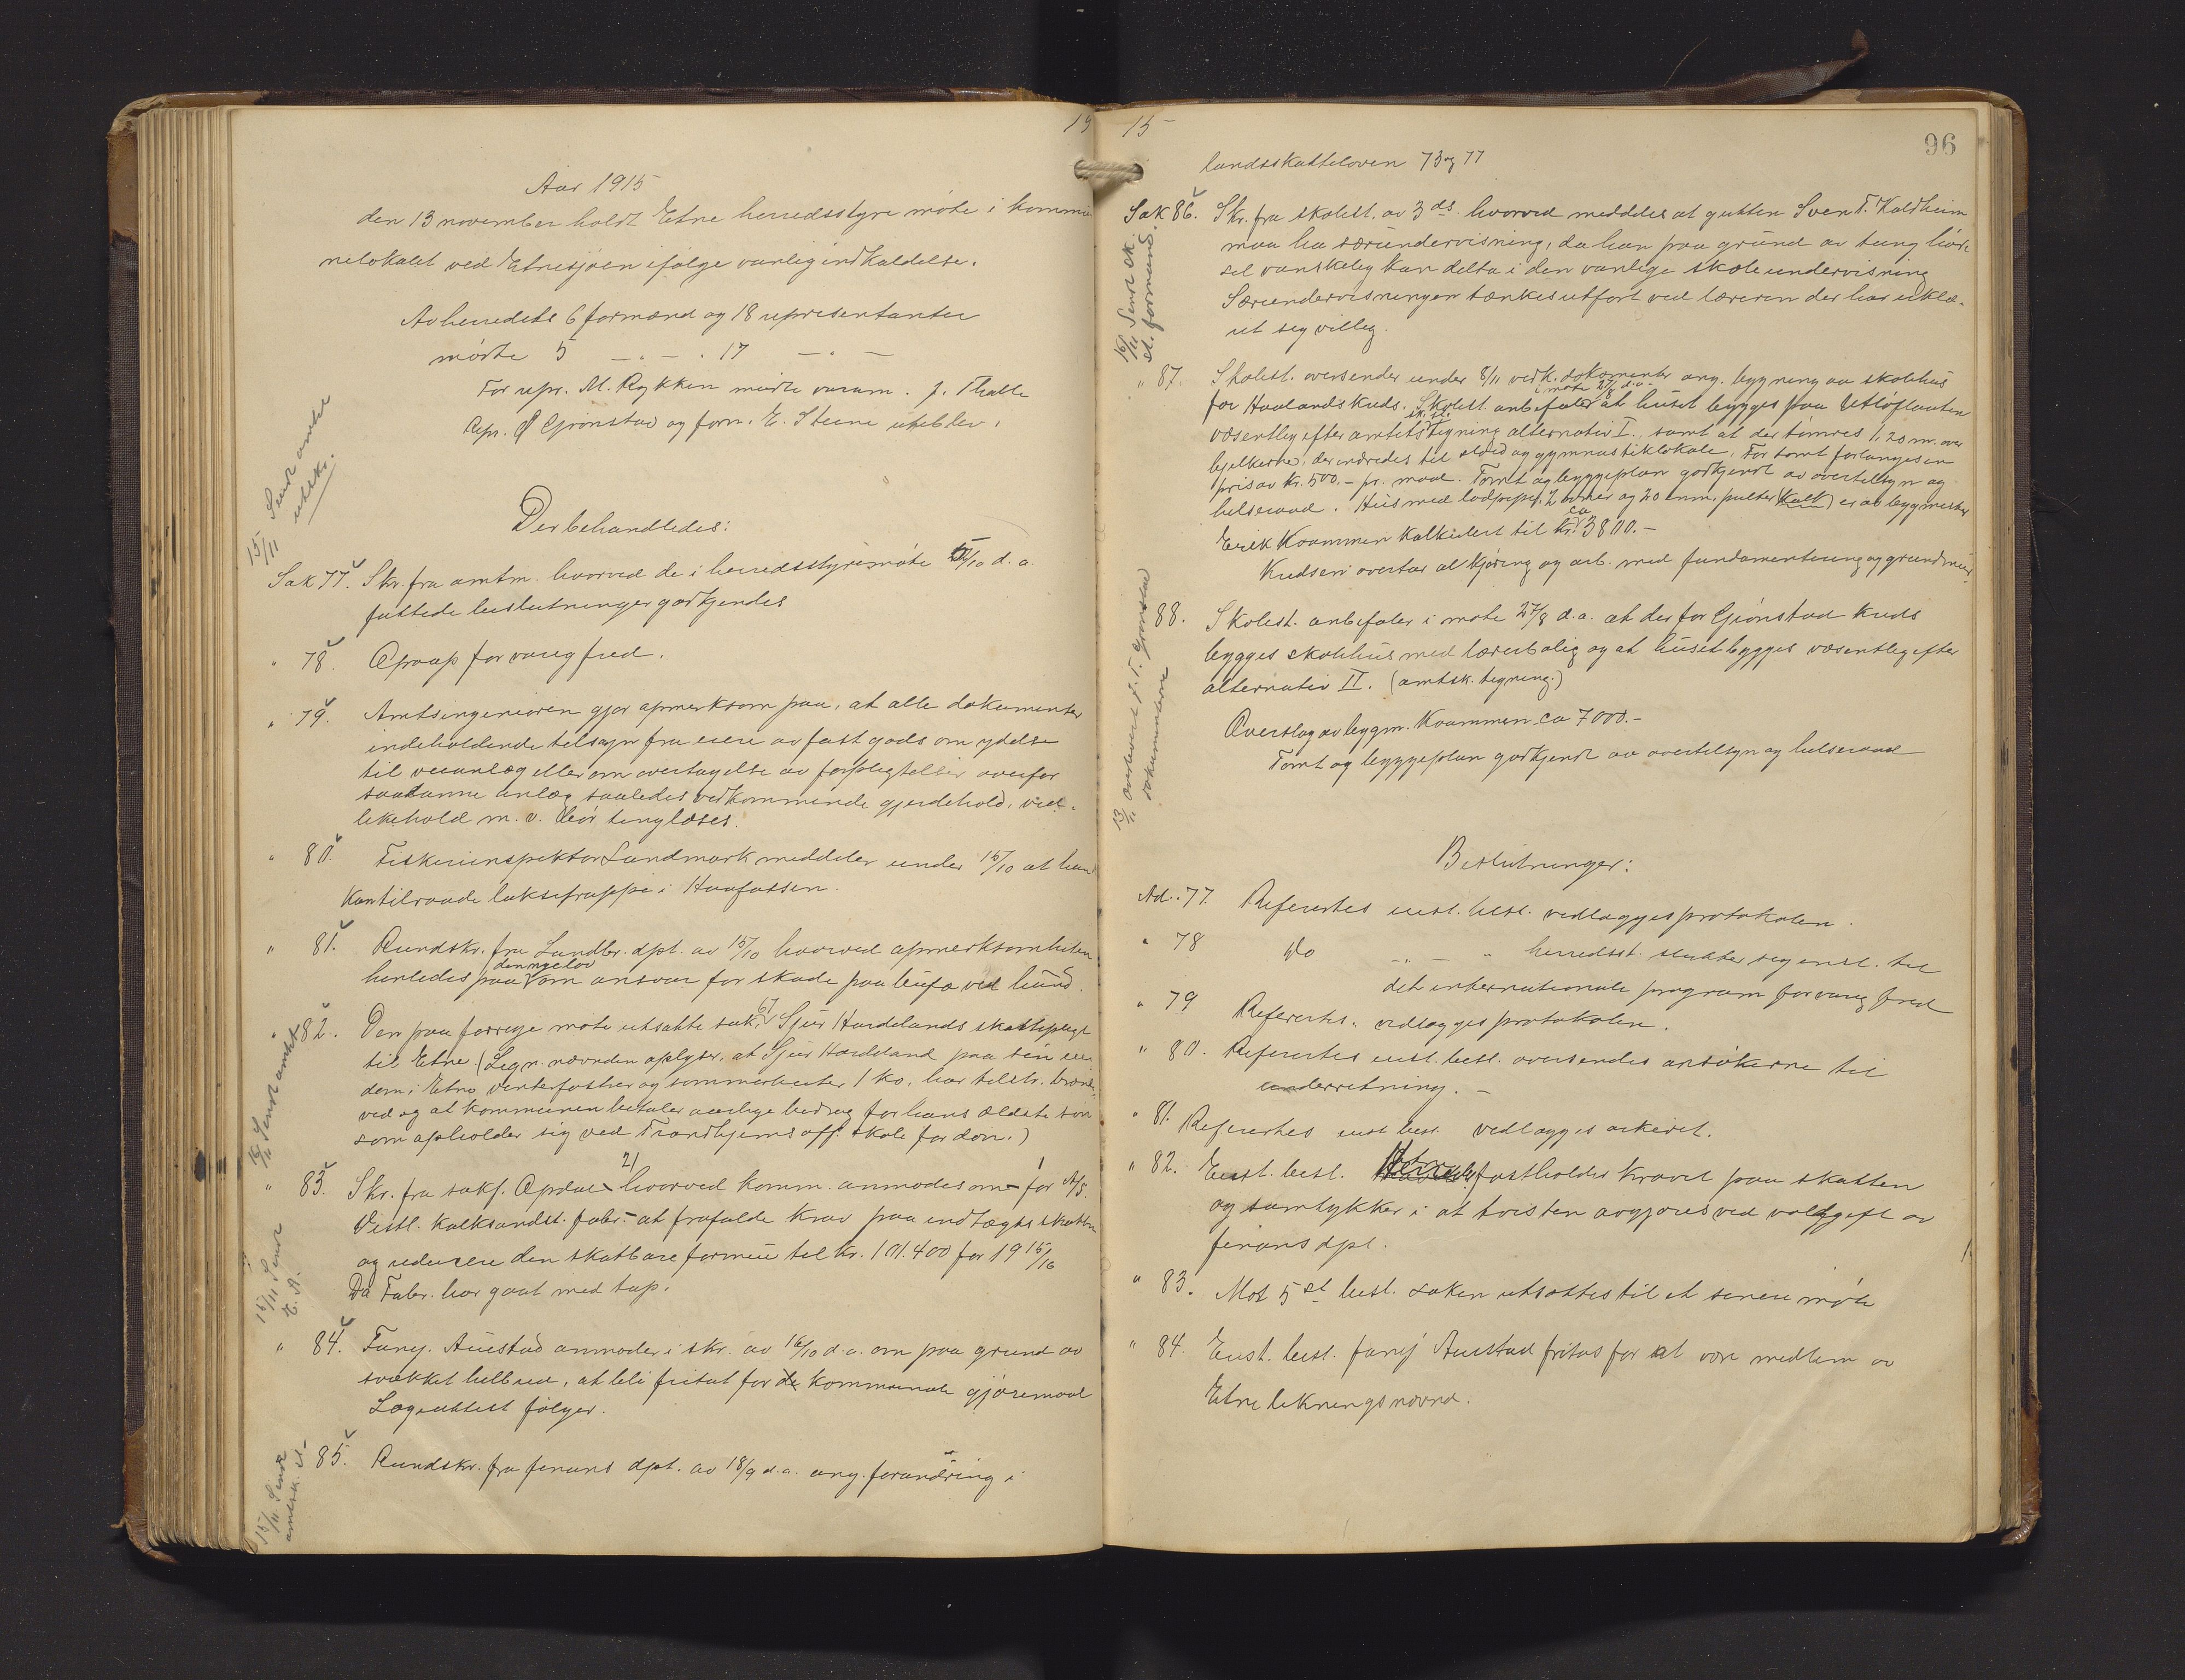 19
Aar 1915
den 13 november holdt Etne herredsstyre møte i kommu-
nelokalet ved Etnesjøen ifølge vanlig indkaldelse.
Av herredets 6 formænd og 18 representanter
møtte 5 — " — . 17 — " —
For repr. M. Rykken møtte varam. J. Thalle
Repr. Ø Grønstad og form. E. Steine uteblev.
15/11 Sendt amtet
utskr.
Der behandledes:
Sak 77. Skr. fra amtm. hvorved de i herredsstyremøte 5/10 d. a.
fattede beslutninger godkjendes
" 78. Oprop for varig fred.
" 79. Amtsingeniøren gjør opmerksom paa, at alle dokumenter
indeholdende tilsagn fra eiere av fast gods om ydelse
til veianlæg eller om overtagelse av forpligtelser overfor
saadanne anlæg saaledes vedkommende gjerdehold, ved-
likehold m. v. bør tinglæses.
" 80. Fiskeriinspektør Landmark meddeler under 15/10 at han
kan tilraade laksetrappe i Haafossen.
" 81. Rundskr. fra Landbr. dpt. av 15/10 hvorved opmerksomheten
henledes paa den nye lov om ansvar for skade paa bufæ ved hund.
" 82. Den paa forrige møte utsatte sak, 67 Sjur Hardelands skattepligt
til Etne. (Lign. nævnden oplyser, at Sjur Hardeland paa sin eien-
dom i Etne vinterfostrer og sommerbeiter 1 ko, har tilstr. brænde-
ved og at kommunen betaler aarlige bidrag for hans ældste søn
som opholder sig ved Trondhjems off. skole for døve.)
16/11 Sendt amtet
" 83. Skr. fra sakf. Opdal 21/ hvorved komm. anmodes om - for A/S.
Vestl. kalksandst. fabr. - at frafalde krav paa indtægtsskatten
og reducere den skatbare formue til kr. 101.400 for 1915/16
Da Fabr. har gaat med tap.
15/11 Sendt
E. A.
" 84. Fung. Austad anmoder i skr. av 16/10 d. a. om paa grund av
svækket helbred, at bli fritat for de kommunale gjøremaal
Lægeattest følger.
" 85. Rundskr. fra finans dpt. av 18/9 d. a. ang. forandring i
15/11 Sendt
amtsk. st-
15
96
landsskatteloven 73 og 77
Sak 86. Skr. fra skolest. av 3 ds. hvorved meddeles at gutten Sven T. Kaldheim
maa ha særundervisning, da han paa grund av tung hør-
sel vanskelig kan delta i den vanlige skoleundervisning
Særundervisningen tænkes utført ved læreren der har erklæ-
ret seg villig.
16/11 Sendt sk.
st. formand.
" 87. Skolest. oversender under 8/11 vedk. dokumenter ang. bygning av skolehus
for Haalandskrds. Skolest. anbefaler i møte 27/8 d. a. at huset bygges paa Utløflaaten
væsentlig efter amtets sk. st. tegning alternativ I., samt at der tømres 1,20 m. over
bjelkerne, der indredes til sløid og gymnastiklokale. For tomt forlanges en
pris av kr. 500.- pr. maal. Tomt og byggeplan godkjendt av overtilsyn og
helseraad. Hus med lodpipe, 2 ovner og 20 enm. pulter er av byggmester
Erik Kvammen kalkulert til ca kr. 3800.-
Kredsen overtar al kjøring og arb. med fundamentering og grundmur.
88. Skolest. anbefaler i møte 27/8 d. a. at der for Grønstad krds
bygges skolehus med lærerbolig og at huset bygges væsentlig efter
alternativ II. (amtsk. tegning.)
Overslag av bygm. Kvammen ca 7000.-
Tomt og byggeplan godkjendt av overtilsyn og helseraad
13/11 overlevert J. T. Grønstad
dokumenterne
Beslutninger:
Ad. 77. Refereertes enst. besl. vedlægges protokolen.
" 78 Do — " — " herredsst. slutter seg enst. til
det internationale program for varig fred
" 79 Refereertes. vedlægges protokolen.
" 80. Refereertes enst. besl. oversendes ansøkerne til
underretning. -
" 81. Refereertes enst. besl. vedlægges arkivet.
" 82. Enst. besl. Etne fastholder kravet paa skatten
og samtykker i at tvisten avgjøres ved voldgift av
finans dpt.
" 83. Mot 5 st. besl. saken utsættes til et senere møte
" 84. Enst. besl. fung Austad fritas for at være medlem av
Etne likningsnævnd.